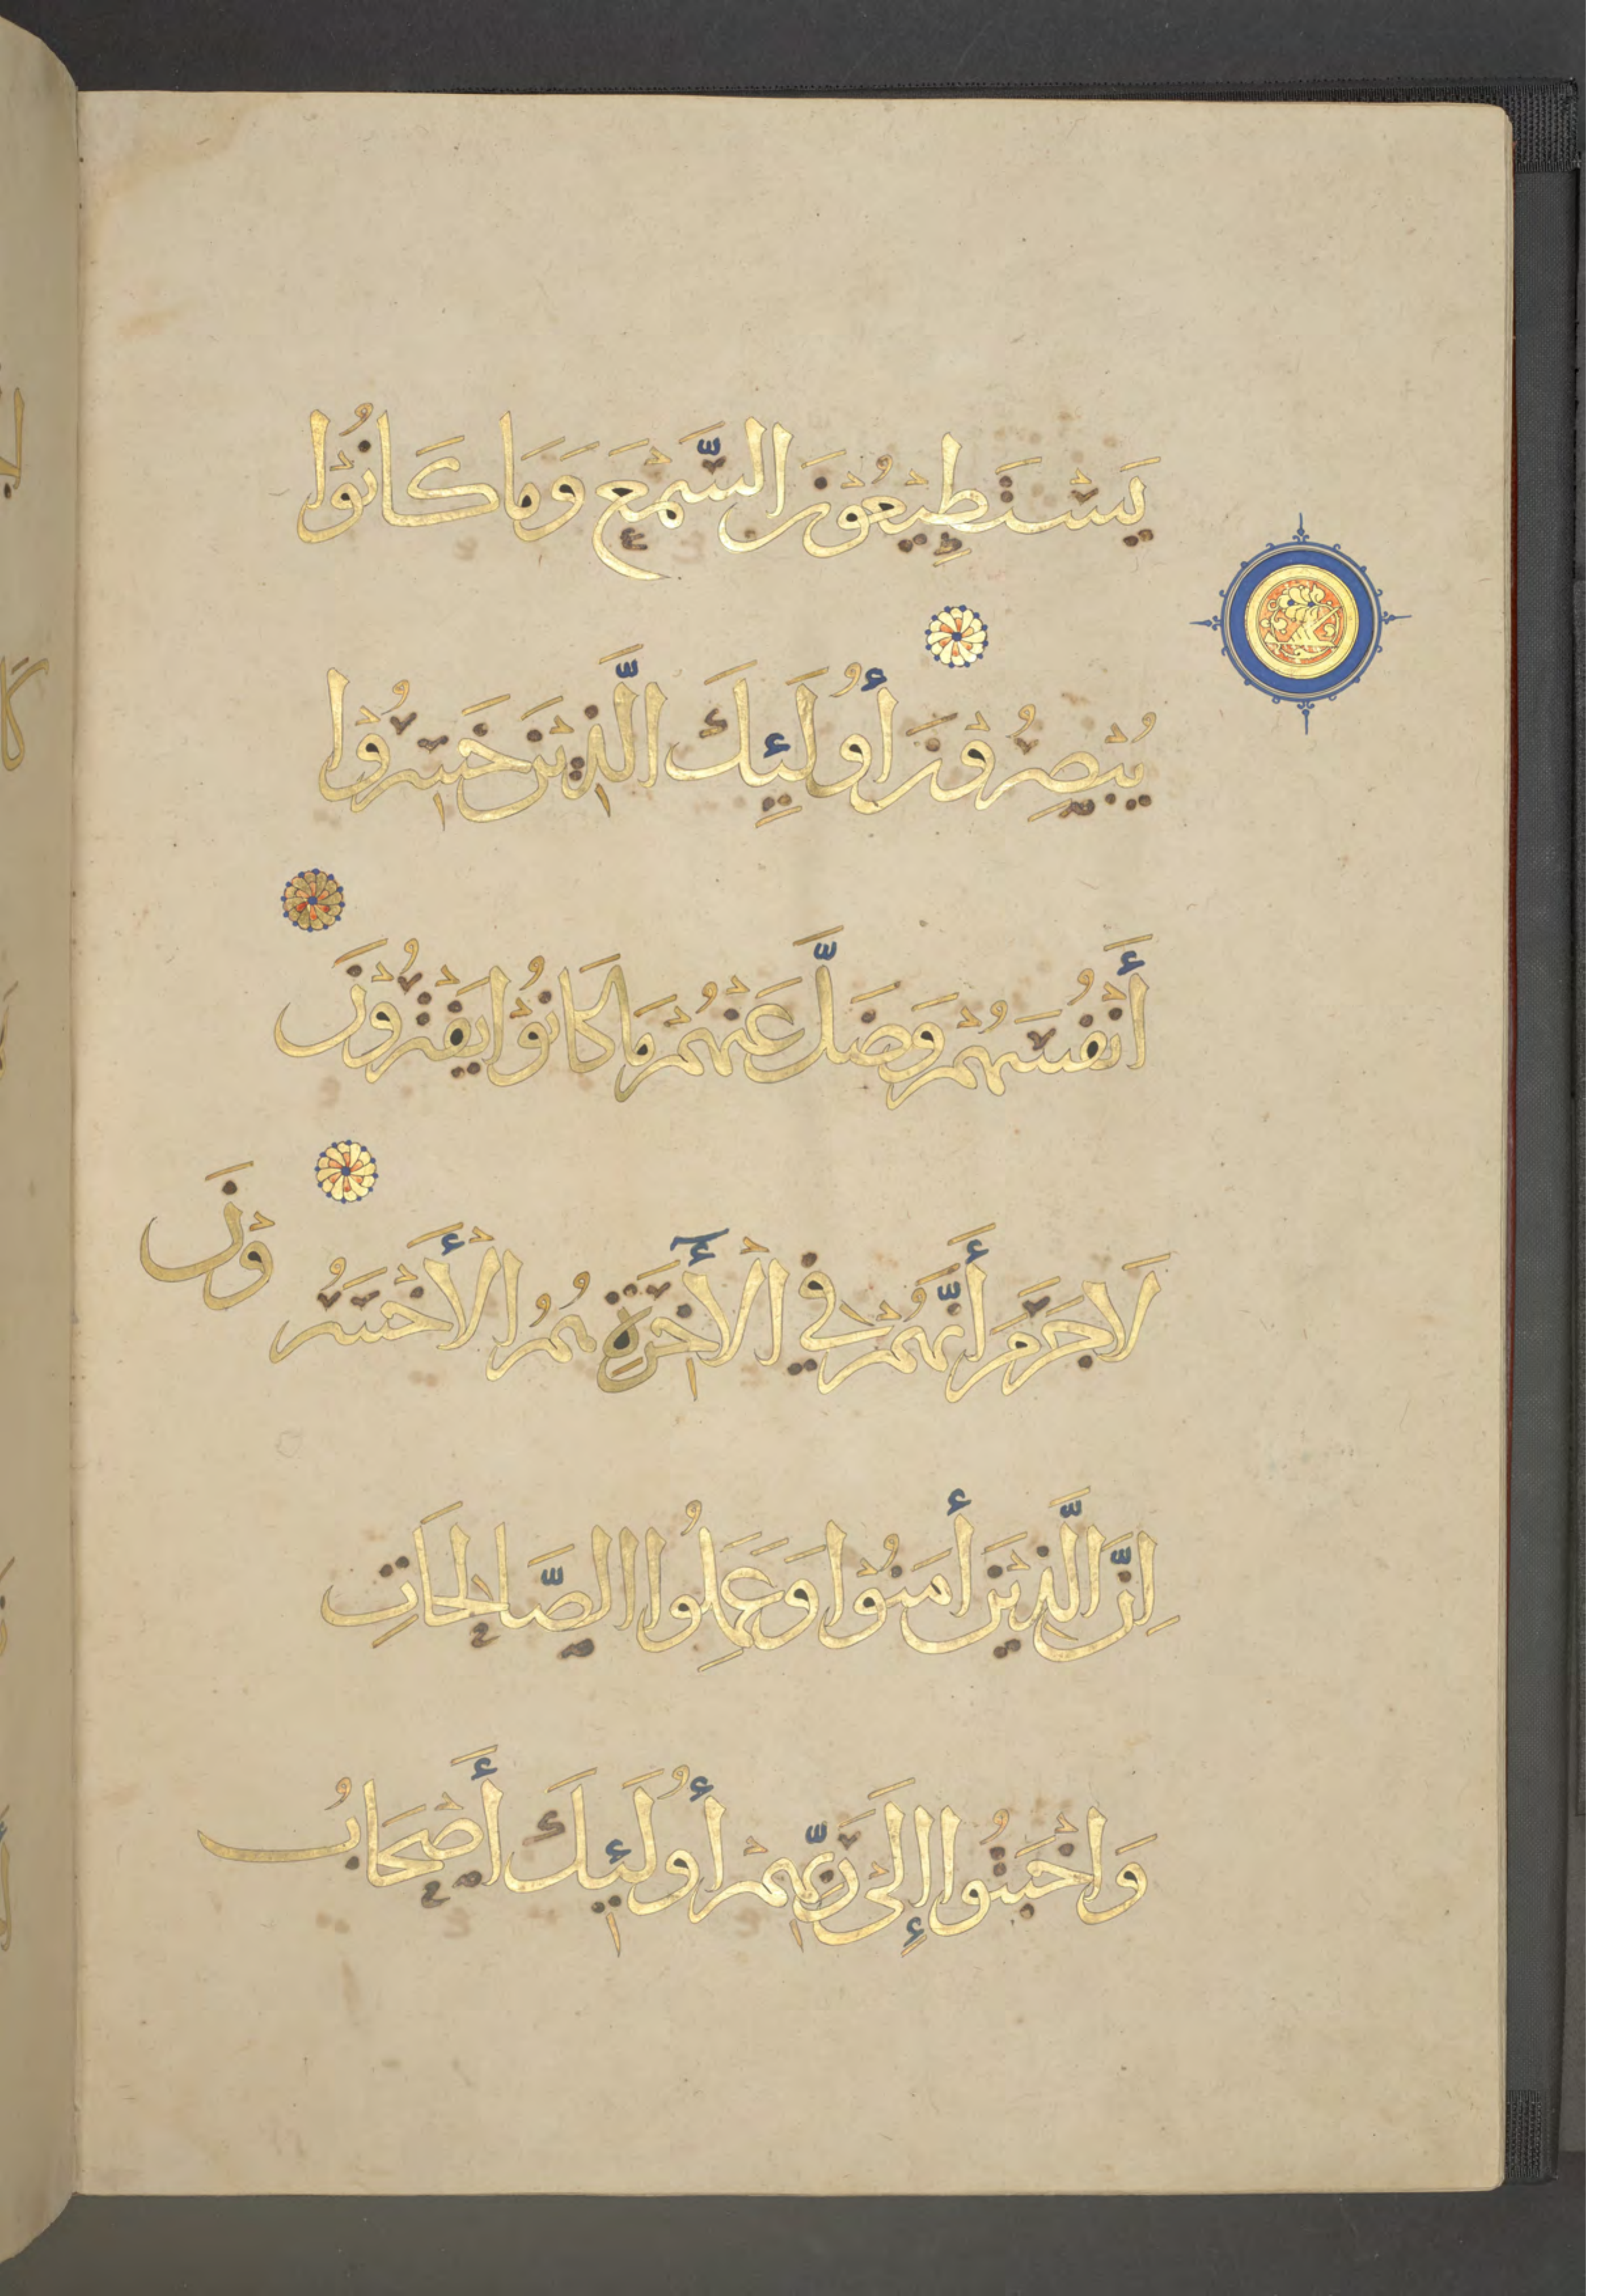 يَسْتَطِيْعُوْنَ السَّمْعَ وَمَا كَانُوْا
يُبْصِرُوْنَ أُولَئِكَ الَّذِيْنَ خَسِرُوْا
أَنْفُسَهُمْ وَضَلَّ عَنْهُمْ مَا كَانُوْا يَفْتَرُوْنَ
لَا جَرَمَ أَنَّهُمْ فِي الْأٓخِرَةِ هُمُ الْأَخْسَرُوْنَ
اِنَّ الَّذِيْنَ أمَنُوْا وَعَمِلُوا الصَّالِحَاتِ
وَاَخْبَتُوا إِلَى رَبِّهِمْ أُولَئِكَ أَصْحَابُ